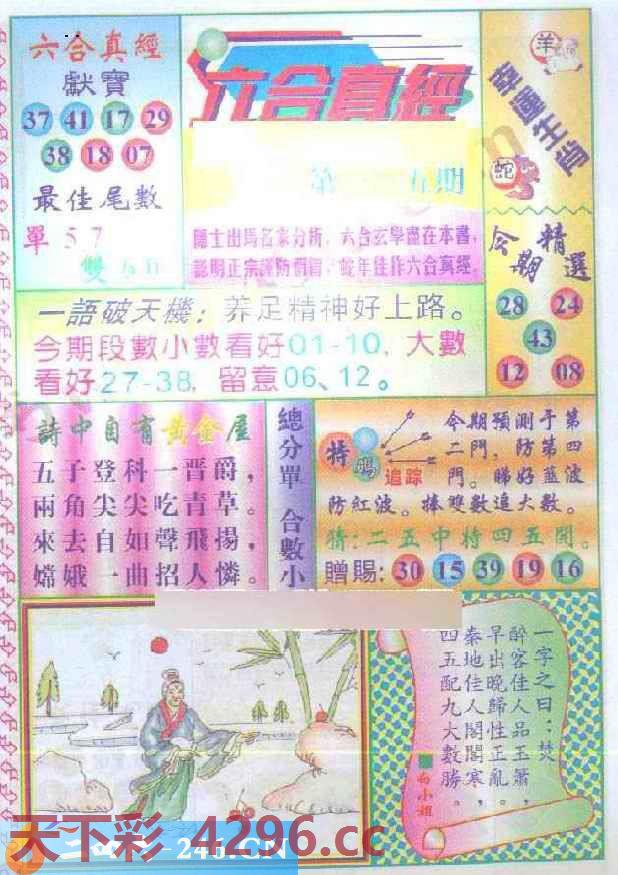 六合真經
獻寶
37 41 17 29
38 18 07
最佳尾數
單 5 7
雙
六合真經
五期
隱士出馬名家分析,六合玄學盡在本書,
聰明正宗謹防假冒,蛇年佳作六合真經.
羊
幸運生肖
蛇
今期精選
28 24
43
12 08
一語破天機:养足精神好上路。
今期段數小數看好01-10,大數
看好27-38,留意06、12。
詩中自有黃金屋
五子登科一晋爵,
兩角尖尖吃青草。
來去自如聲飛揚,
嫦娥一曲招人憐。
總分單 合數小
特碼
追踪
今期預測于第
二門,防第四
門。睇好藍波
防紅波。捧雙數追大數。
猜:二五中特四五開。
贈賜:30 15 39 19 16
一字之曰:焚
醉客佳人品玉簫,
早出晚歸性正亂。
秦地佳人閣閣寒,
四五配九大數勝。
白小姐
天下彩 4296.cc
246.CN